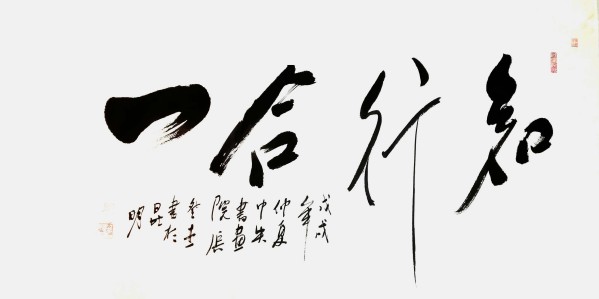 知行合一
戊戌
年
仲夏
中央
書畫
院張
書於
昆
明